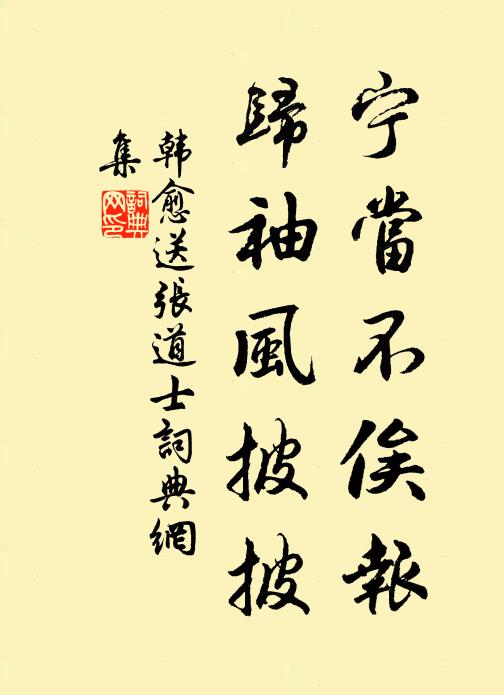 宁當不俟報
歸袖風披披
韩愈送張道士詞典網
集
詞典网印